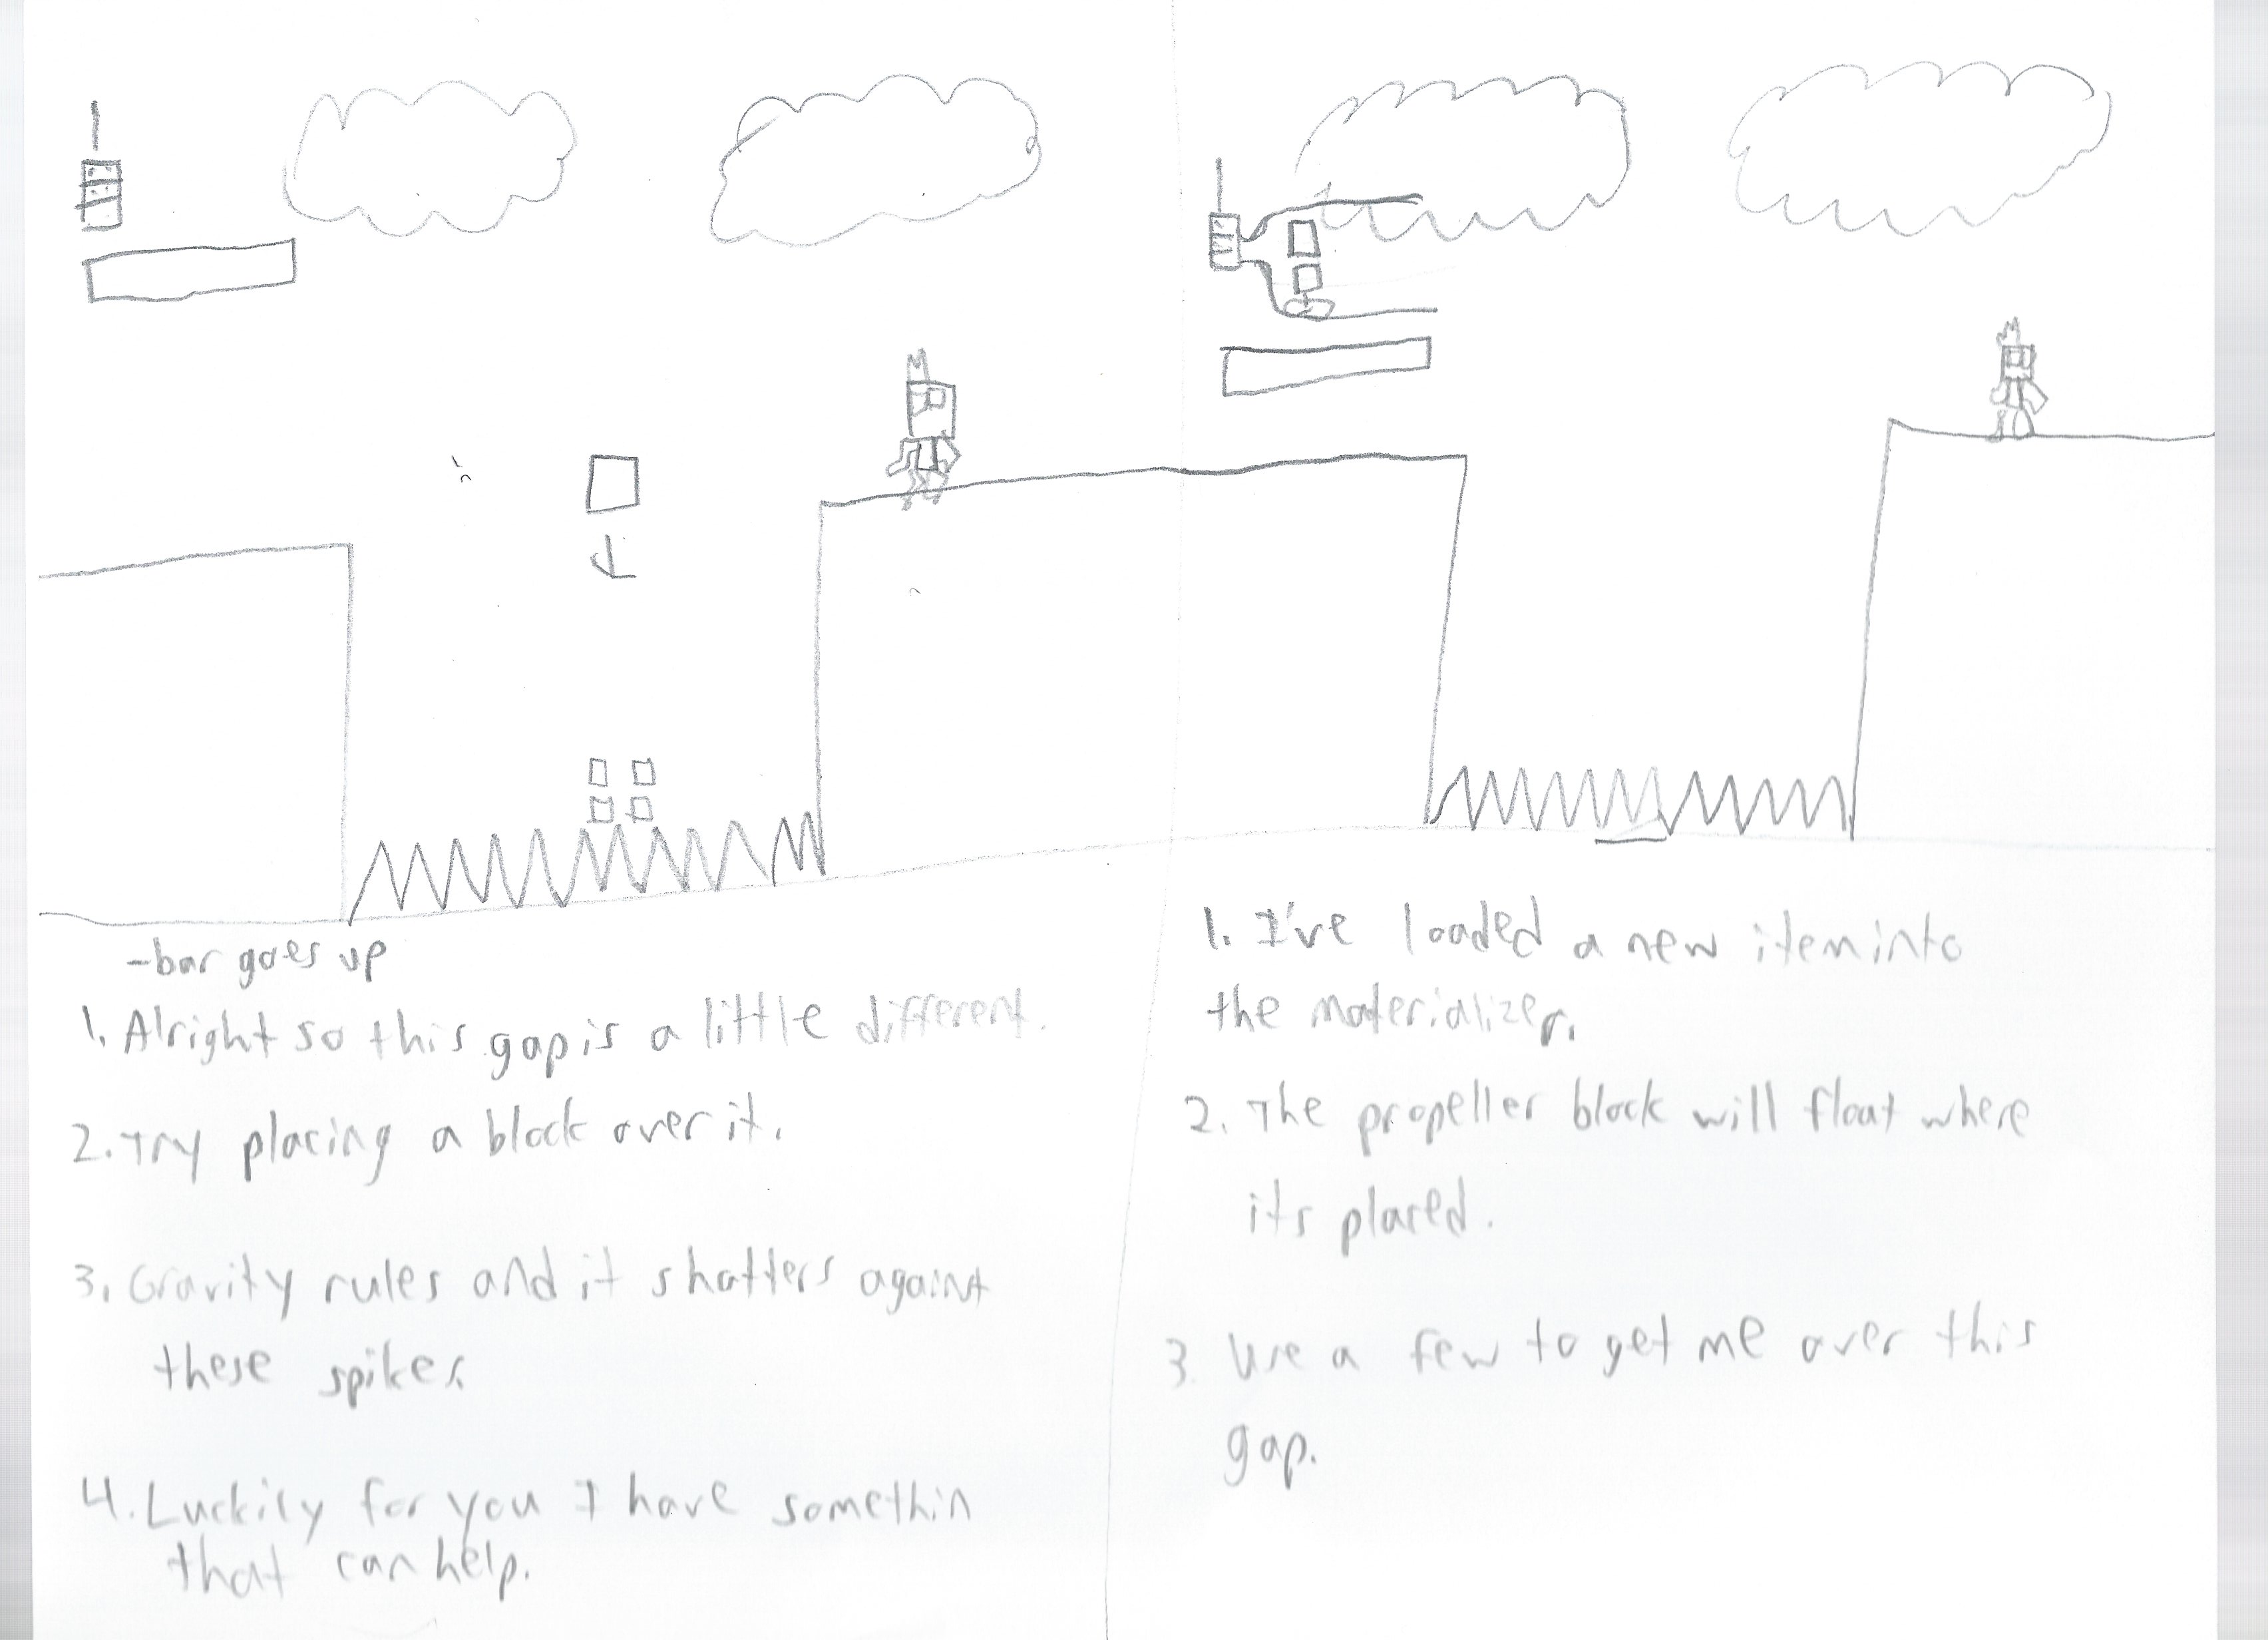 -bar goes up
1. Alright so this gap is a little different.
2. Try placing a block over it.
3. Gravity rules and it shatters against
these spikes.
4. Luckily for you I have somethin
that can help.
1. I've loaded a new item into
the materializer.
2. The propeller block will float where
its placed.
3. Use a few to get me over this
gap.